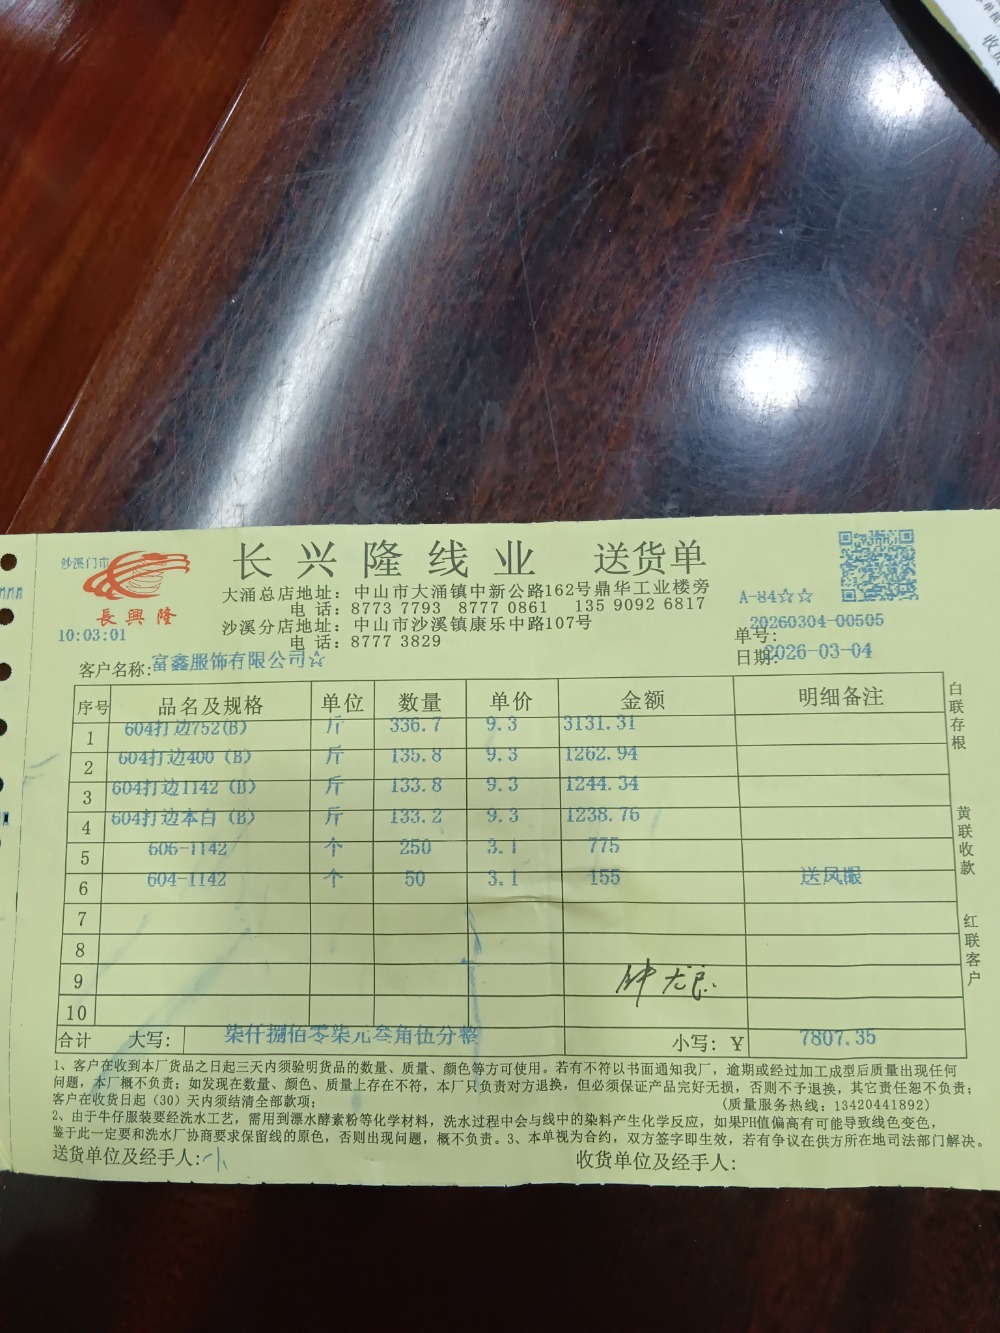 沙溪门市
長興隆
10:03:01
长兴隆线业 送货单
大涌总店地址：中山市大涌镇中新公路162号鼎华工业楼旁
电 话：8773 7793 8777 0861 135 9092 6817
沙溪分店地址：中山市沙溪镇康乐中路107号
电 话：8777 3829
A-84☆☆
单号：20260304-00505
日期：2026-03-04
客户名称：富鑫服饰有限公司☆
序号 品名及规格 单位 数量 单价 金额 明细备注
1 604打边752(B) 斤 336.7 9.3 3131.31
2 604打边400 (B) 斤 135.8 9.3 1262.94
3 604打边1142 (B) 斤 133.8 9.3 1244.34
4 604打边本白 (B) 斤 133.2 9.3 1238.76
5 606-1142 个 250 3.1 775
6 604-1142 个 50 3.1 155 送凤眼
7
8
9
10
合计 大写： 柒仟捌佰零柒元叁角伍分整 小写：￥ 7807.35
白联存根
黄联收款
红联客户
1、客户在收到本厂货品之日起三天内须验明货品的数量、质量、颜色等方可使用。若有不符以书面通知我厂，逾期或经过加工成型后质量出现任何
问题，本厂概不负责；如发现在数量、颜色、质量上存在不符，本厂只负责对方退换，但必须保证产品完好无损，否则不予退换，其它责任恕不负责；
客户在收货日起（30）天内须结清全部款项； （质量服务热线：13420441892）
2、由于牛仔服装要经洗水工艺，需用到漂水酵素粉等化学材料，洗水过程中会与线中的染料产生化学反应，如果PH值偏高有可能导致线色变色，
鉴于此一定要和洗水厂协商要求保留线的原色，否则出现问题，概不负责。3、本单视为合约，双方签字即生效，若有争议在供方所在地司法部门解决。
送货单位及经手人：小 收货单位及经手人：